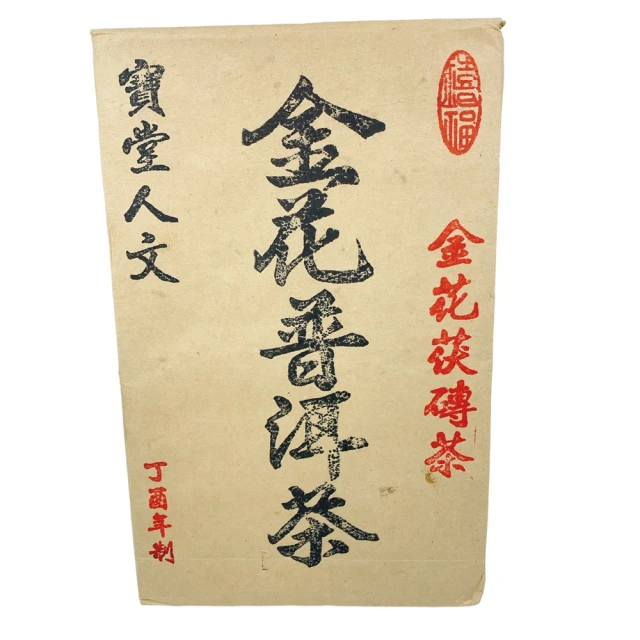 禧福
金花茯磚茶
金花普洱茶
寶堂人文
丁酉年制